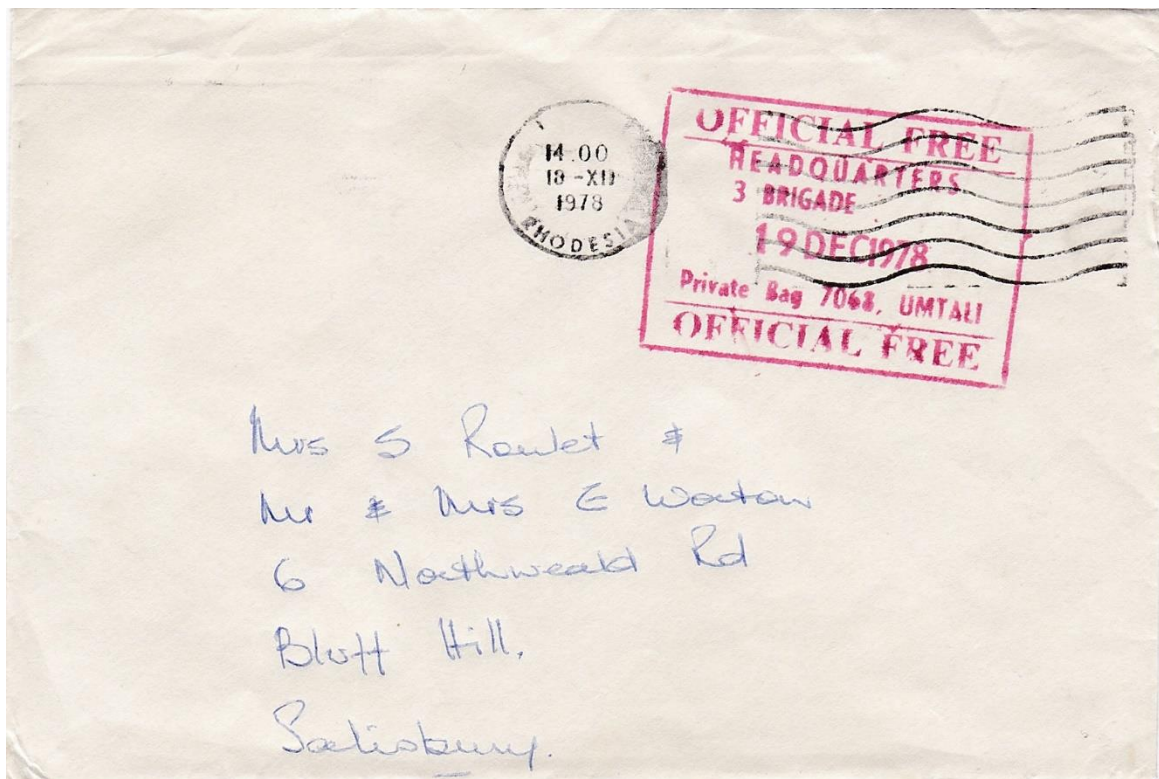 14.00
18-XII
1978
RHODESIA
OFFICIAL FREE
HEADQUARTERS
3 BRIGADE
19 DEC 1978
Private Bag 7068, UMTALI
OFFICIAL FREE
Mrs S Rowlet &
Mr & Mrs E Worton
6 Northweald Rd
Bluff Hill,
Salisbury.